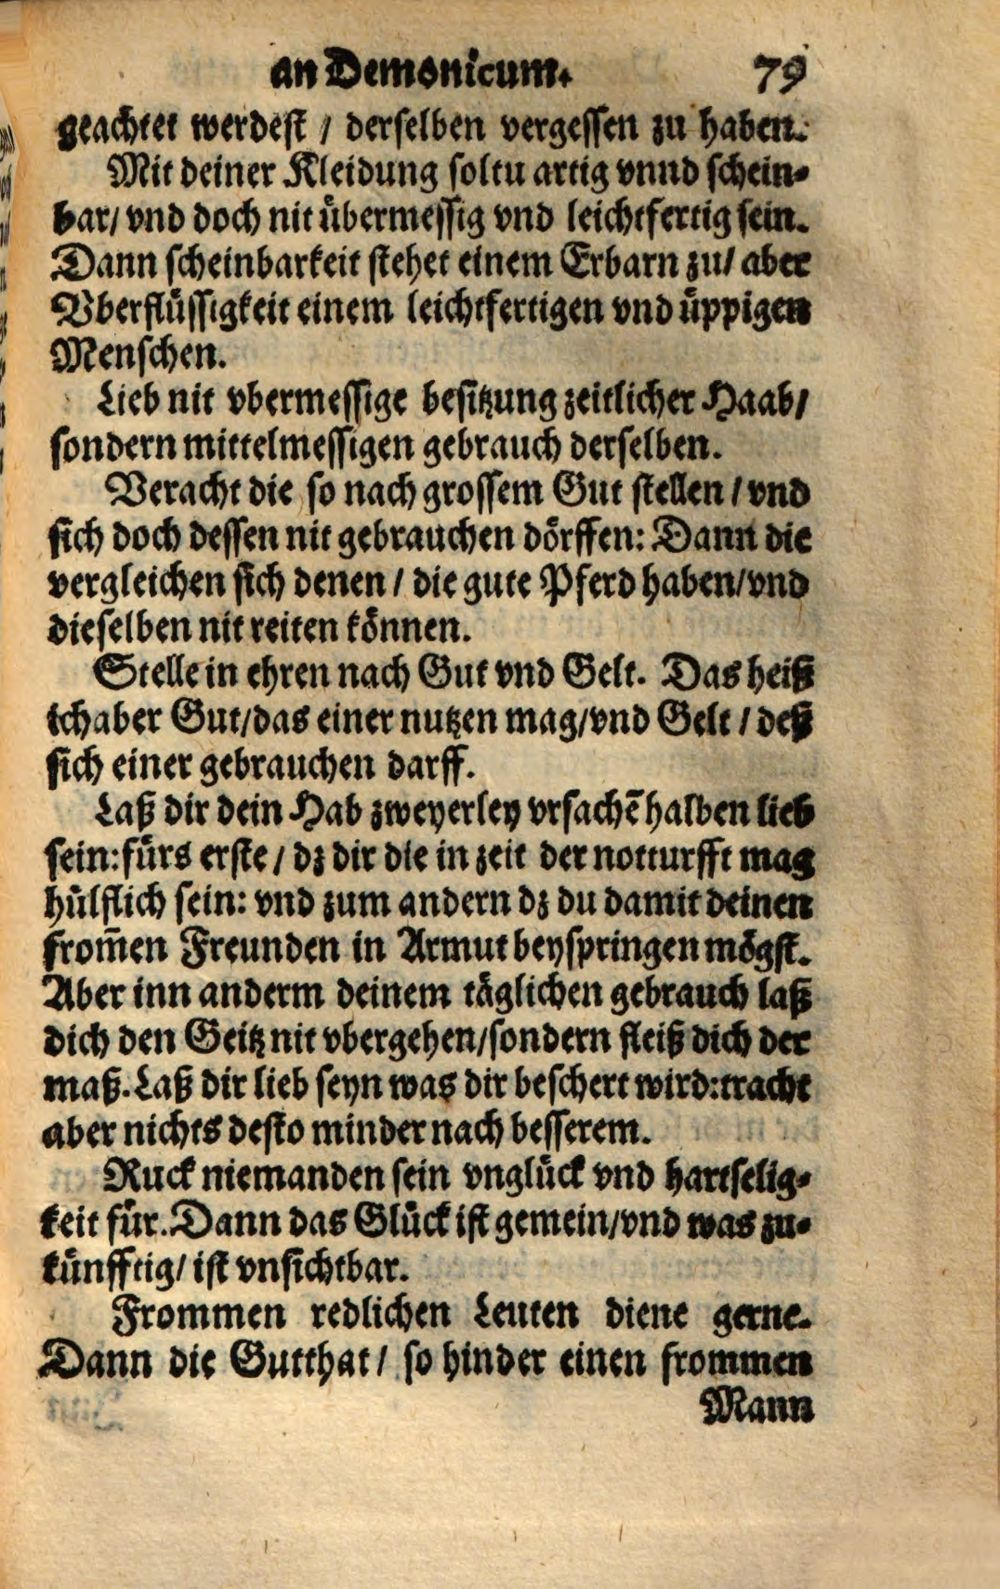 an Demonicum. 79
geachtet werdest / derselben vergessen zu haben.
Mit deiner Kleidung soltu artig vnnd schein-
bar/ vnd doch nit übermessig vnd leichtfertig sein.
Dann scheinbarkeit stehet einem Erbarn zu/ aber
Vberflüssigkeit einem leichtfertigen vnd üppigen
Menschen.
Lieb nit vbermessige besitzung zeitlicher Haab/
sondern mittelmessigen gebrauch derselben.
Veracht die so nach grossem Gut stellen / vnd
sich doch dessen nit gebrauchen dörffen: Dann die
vergleichen sich denen / die gute Pferd haben/vnd
dieselben nit reiten können.
Stelle in ehren nach Gut vnd Gelt. Das heiß
ich aber Gut/das einer nutzen mag/vnd Gelt / deß
sich einer gebrauchen darff.
Laß dir dein Hab zweyerley vrsachē halben lieb
sein: fürs erste / dz dir die in zeit der notturfft mag
hülflich sein: vnd zum andern dz du damit deinen
from̃en Freunden in Armut beyspringen mögst.
Aber inn anderm deinem täglichen gebrauch laß
dich den Geitz nit vbergehen/sondern fleiß dich der
maß. Laß dir lieb seyn was dir beschert wird: tracht
aber nichts desto minder nach besserem.
Ruck niemanden sein vnglück vnd hartselig-
keit für. Dann das Glück ist gemein/vnd was zu-
künfftig/ ist vnsichtbar.
Frommen redlichen Leuten diene gerne.
Dann die Gutthat / so hinder einen frommen
Mann